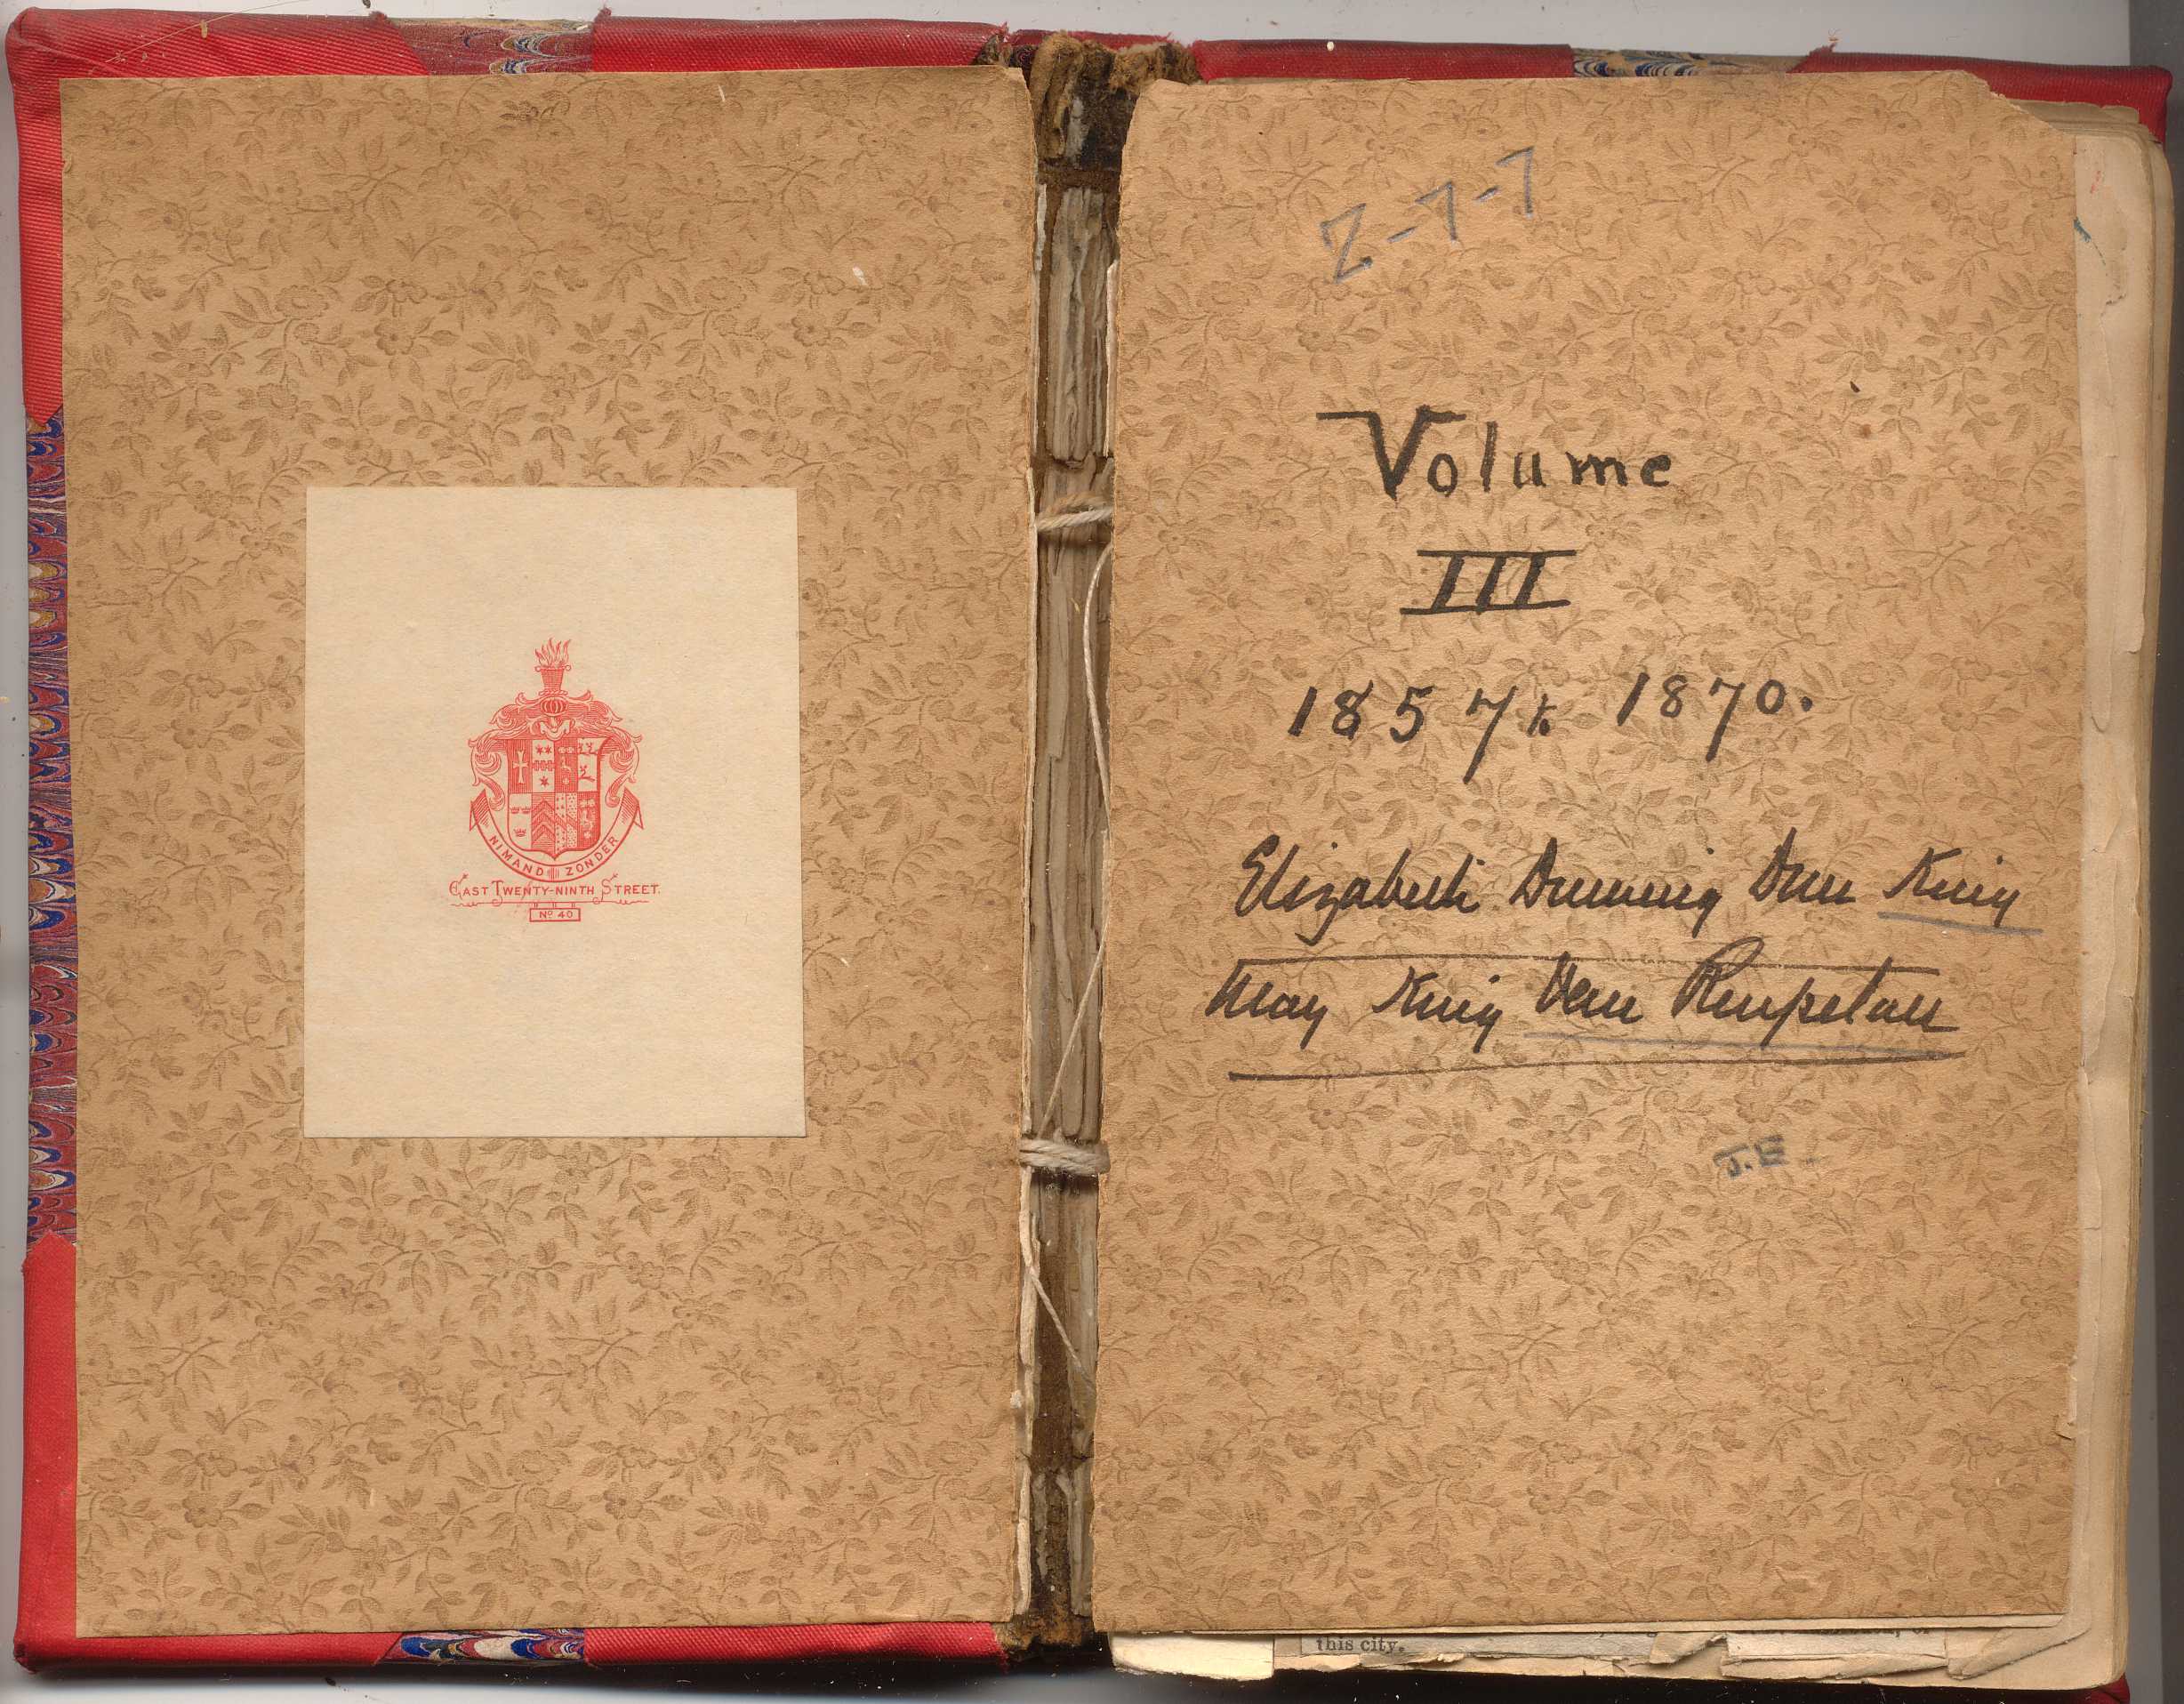 NIMAND ZONDER
EAST TWENTY-NINTH STREET.
No 40
Z-7-7
Volume
III
1857 to 1870.
Elizabeth Denning Duer King
May King Van Rensselaer
J.E
this city.